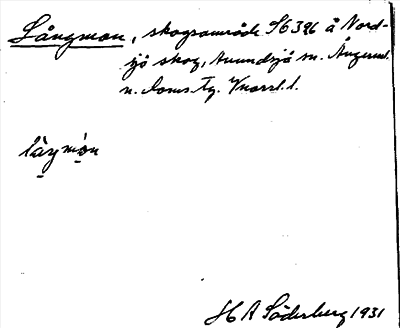 Långmon, skogsområde S/6396 å Nord-
sjö skog, Anundsjö sn. Ångerml.
n. doms. Tg. Vnorrl. l.
làŋmo̠n
H A Söderberg 1931